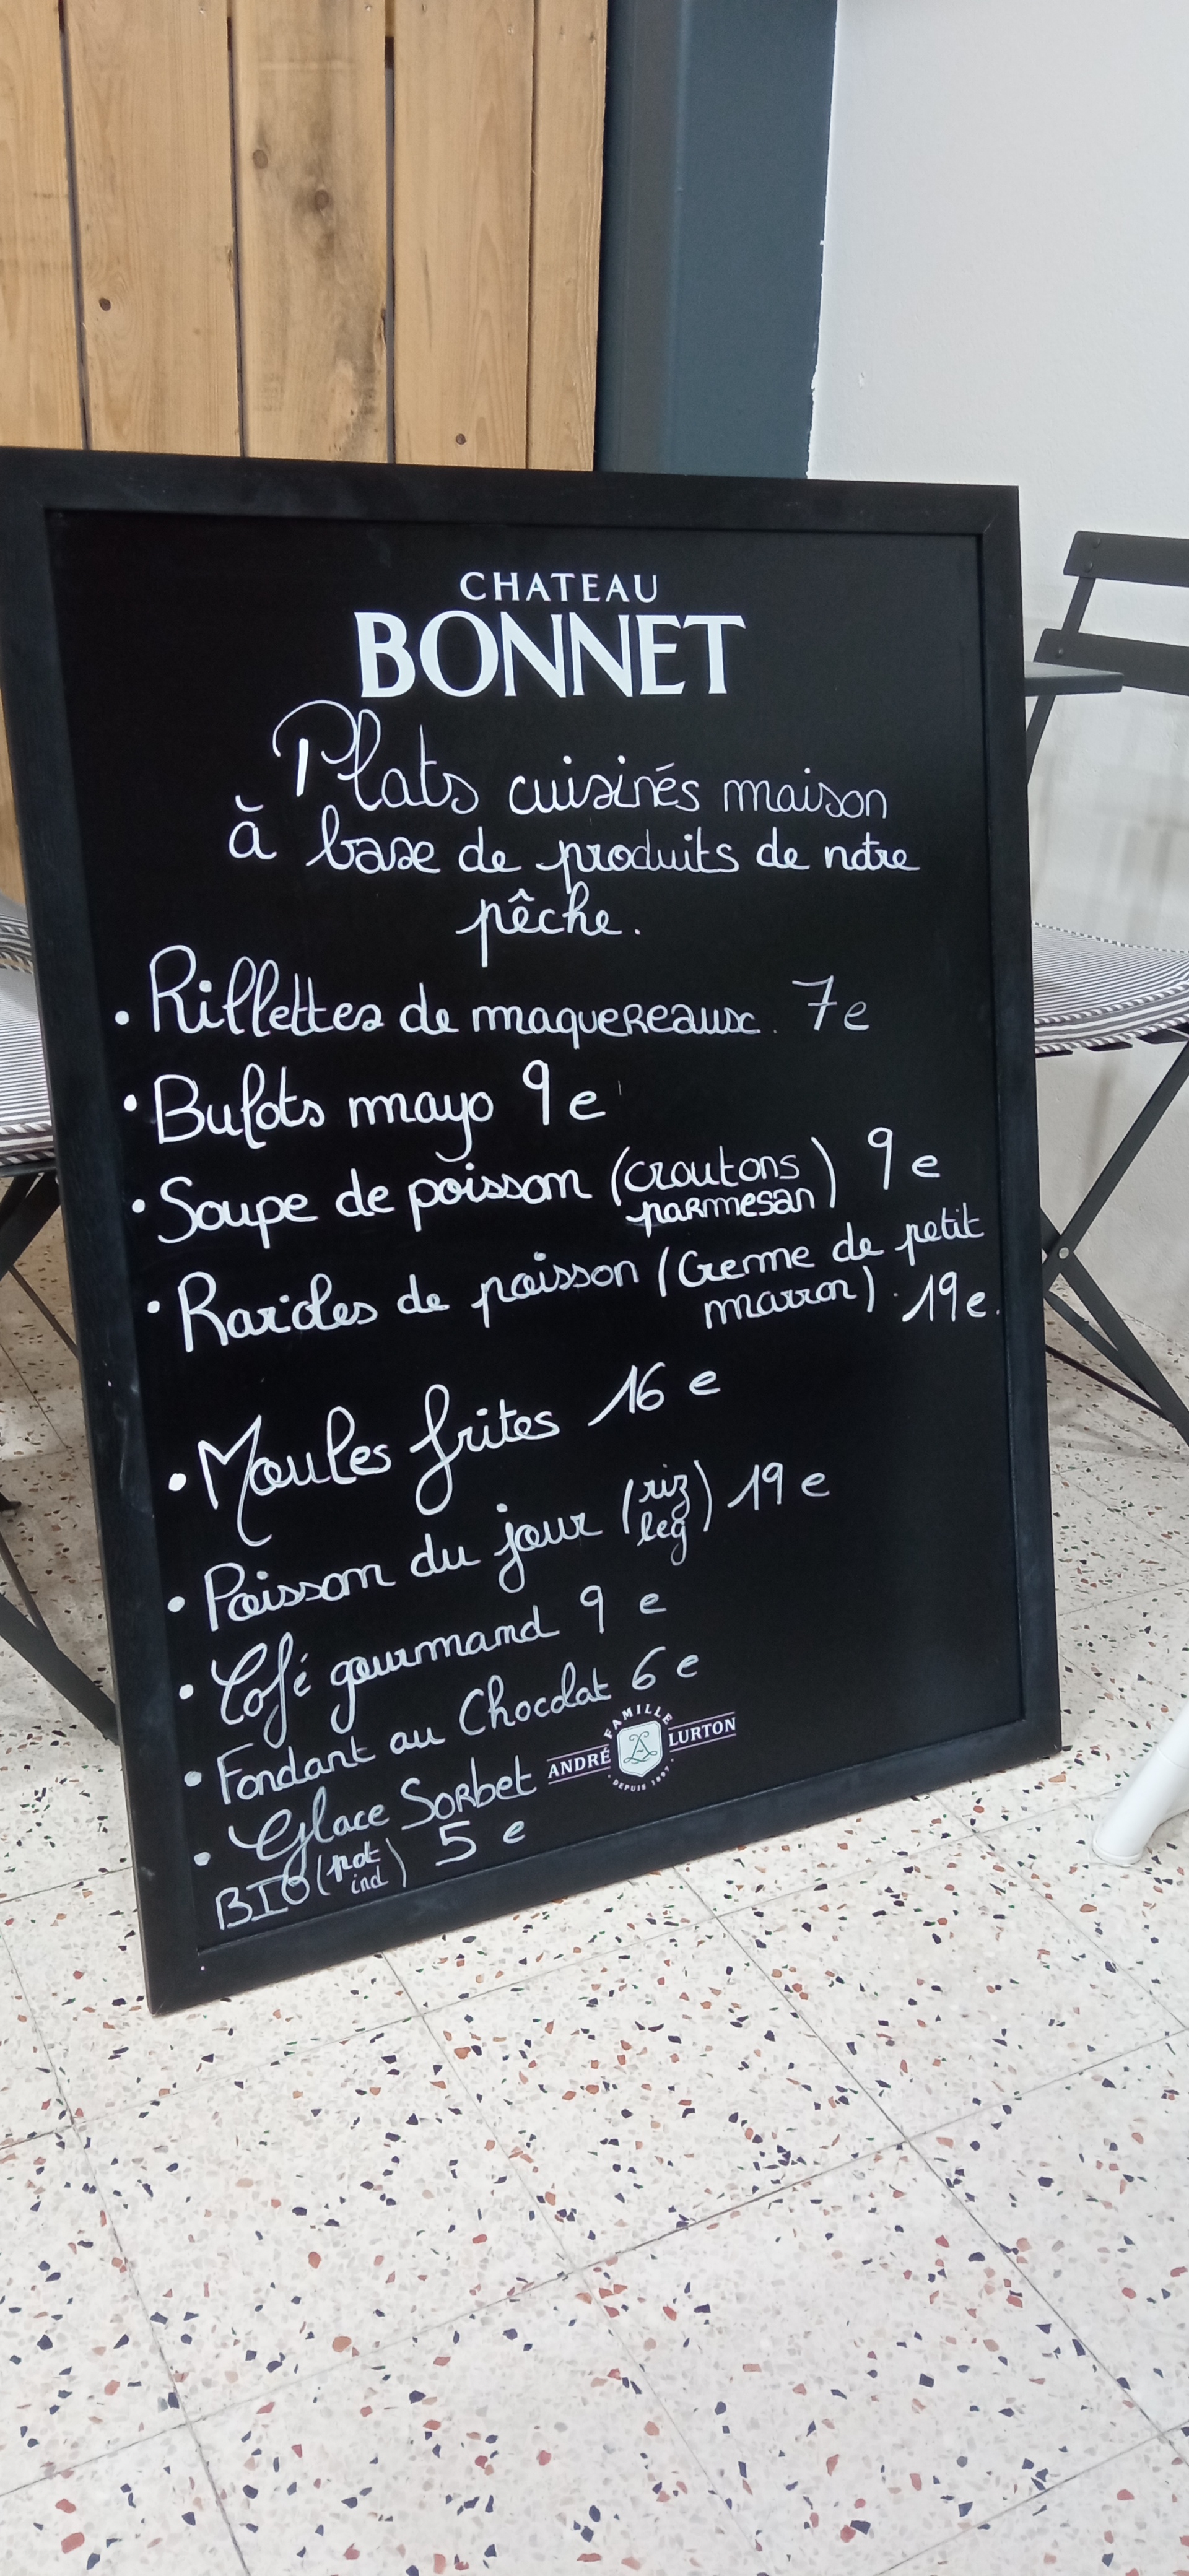 CHATEAU
BONNET
Plats cuisinés maison
à base de produits de notre
pêche.
• Rillettes de maquereaux. 7e
• Bulots mayo 9 e
• Soupe de poisson (croutons
parmesan) 9 e
• Ravioles de poisson (Creme de petit
marron). 19e.
• Moules frites 16 e
• Poisson du jour (riz
leg) 19 e
• Café gourmand 9 e
• Fondant au Chocolat 6 e
• Glace Sorbet
BIO (pot
ind) 5 e
FAMILLE
ANDRÉ LURTON
DEPUIS 1897